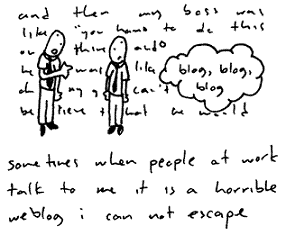 and then my boss was
like "you have to do this
on thing and
he was like blog, blog,
oh my g can't blog
be lieve t hat he would
sometimes when people at work
talk to me it is a horrible
weblog i can not escape